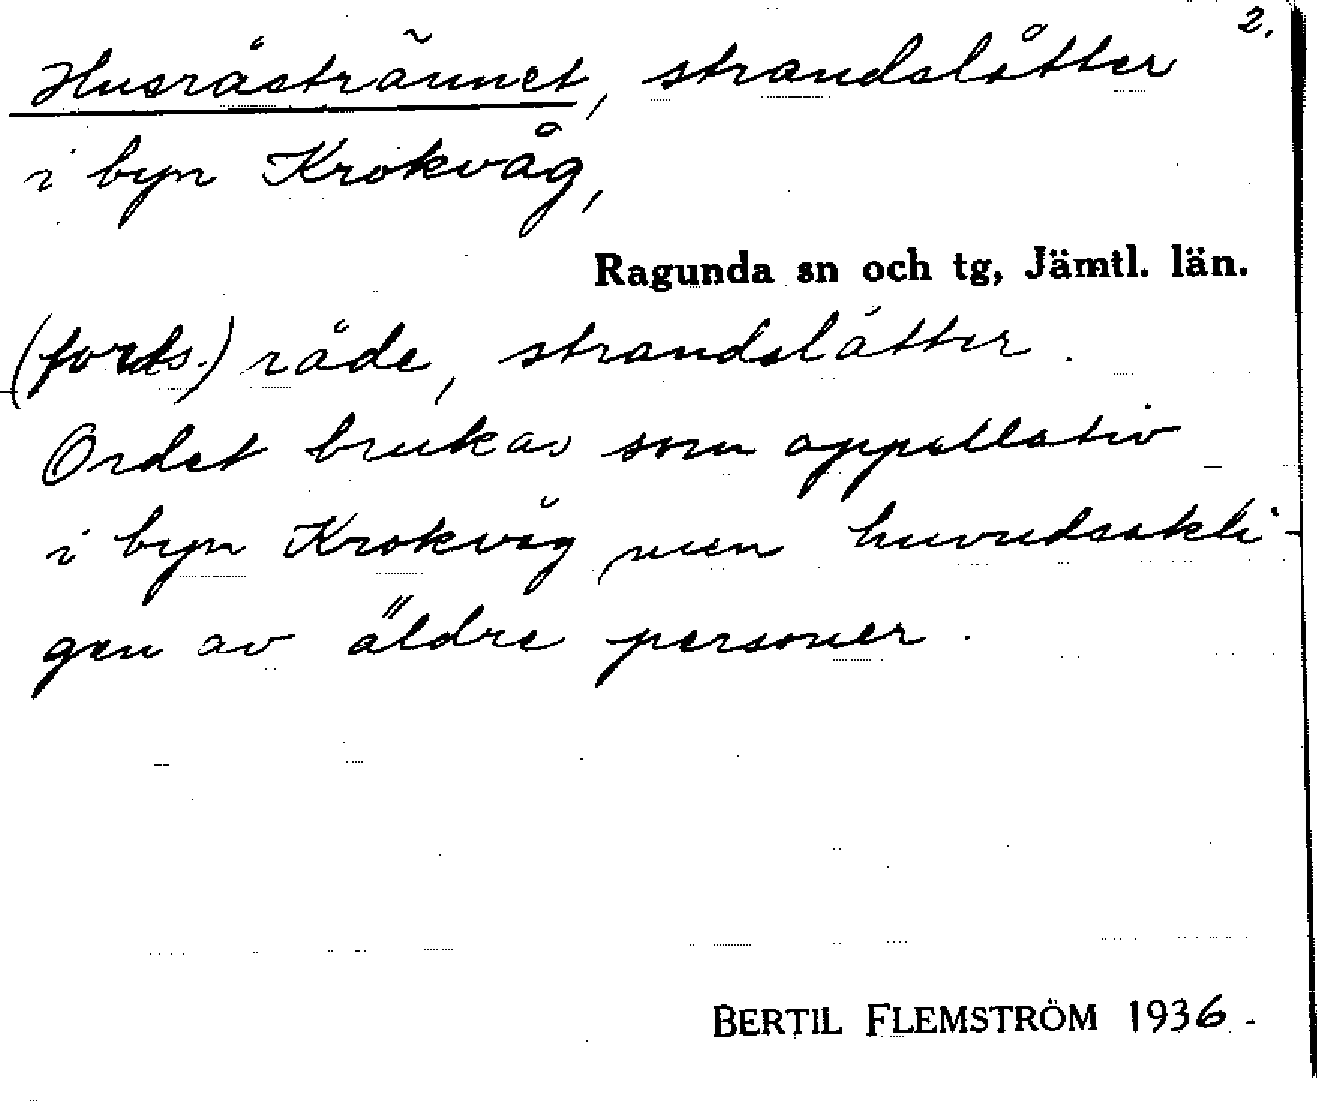 2.
Husråstrännet, strandslåtter
i byn Krokvåg,
Ragunda sn och tg, Jämtl. län.
(forts.) råde, strandslåtter.
Ordet brukas som appellativ
i byn Krokvåg, men huvudsakli-
gen av äldre personer.
BERTIL FLEMSTRÖM 1936.